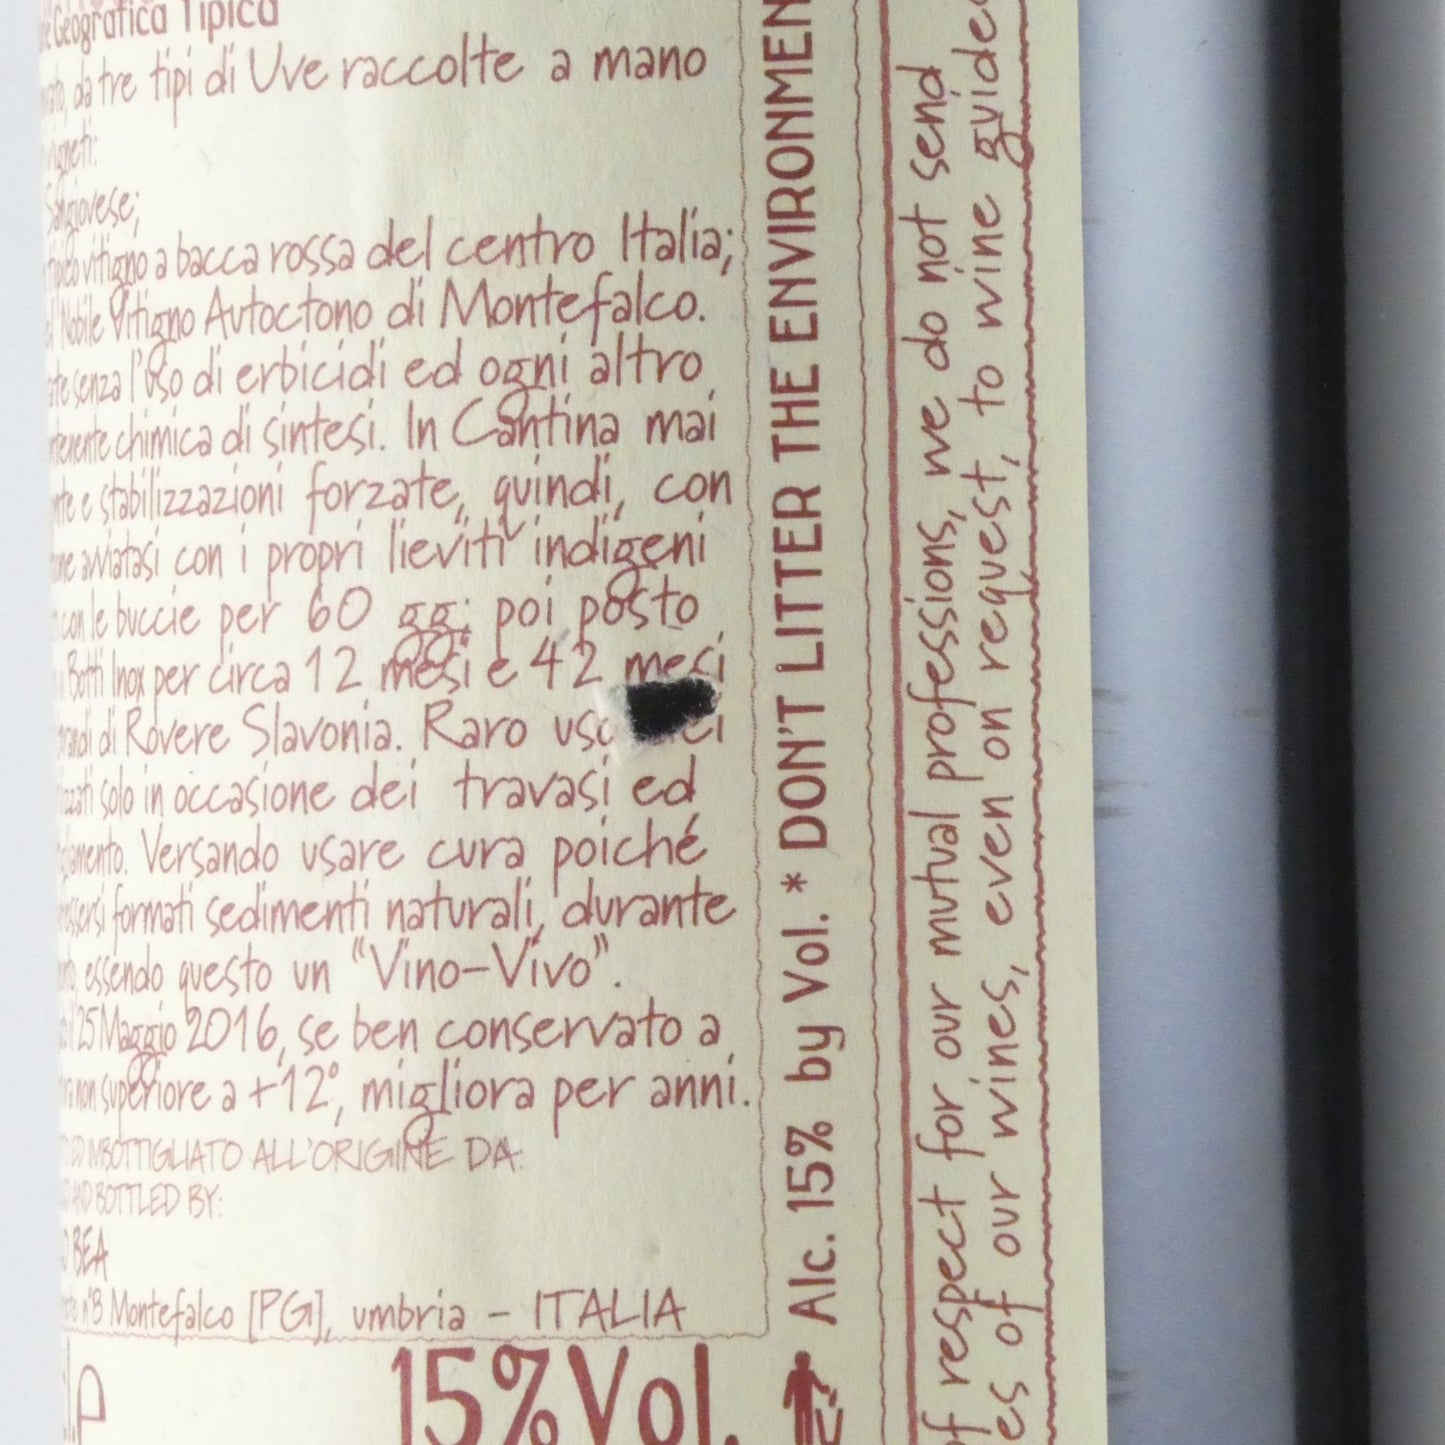 Geografica Tipica
da tre tipi di Uve raccolte a mano
Vigneti:
Sangiovese;
tipico vitigno a bacca rossa del centro Italia;
Nobile Vitigno Autoctono di Montefalco.
senza l'uso di erbicidi ed ogni altro
chimica di sintesi. In Cantina mai
e stabilizzazioni forzate, quindi, con
avviatasi con i propri lieviti indigeni
con le buccie per 60 gg; poi posto
Botti Inox per circa 12 mesi e 42 mesi
di Rovere Slavonia. Raro
solo in occasione dei travasi ed
Versando usare cura poiché
formati sedimenti naturali, durante
essendo questo un "Vino-Vivo".
25 Maggio 2016, se ben conservato a
non superiore a +12°, migliora per anni.
ED IMBOTTIGLIATO ALL'ORIGINE DA:
AND BOTTLED BY:
BEA
n°8 Montefalco [PG], umbria - ITALIA
15% Vol.
Alc. 15% by Vol. * DON'T LITTER THE
respect for our mutual professions, we do not send
of our wines, even on request, to wine